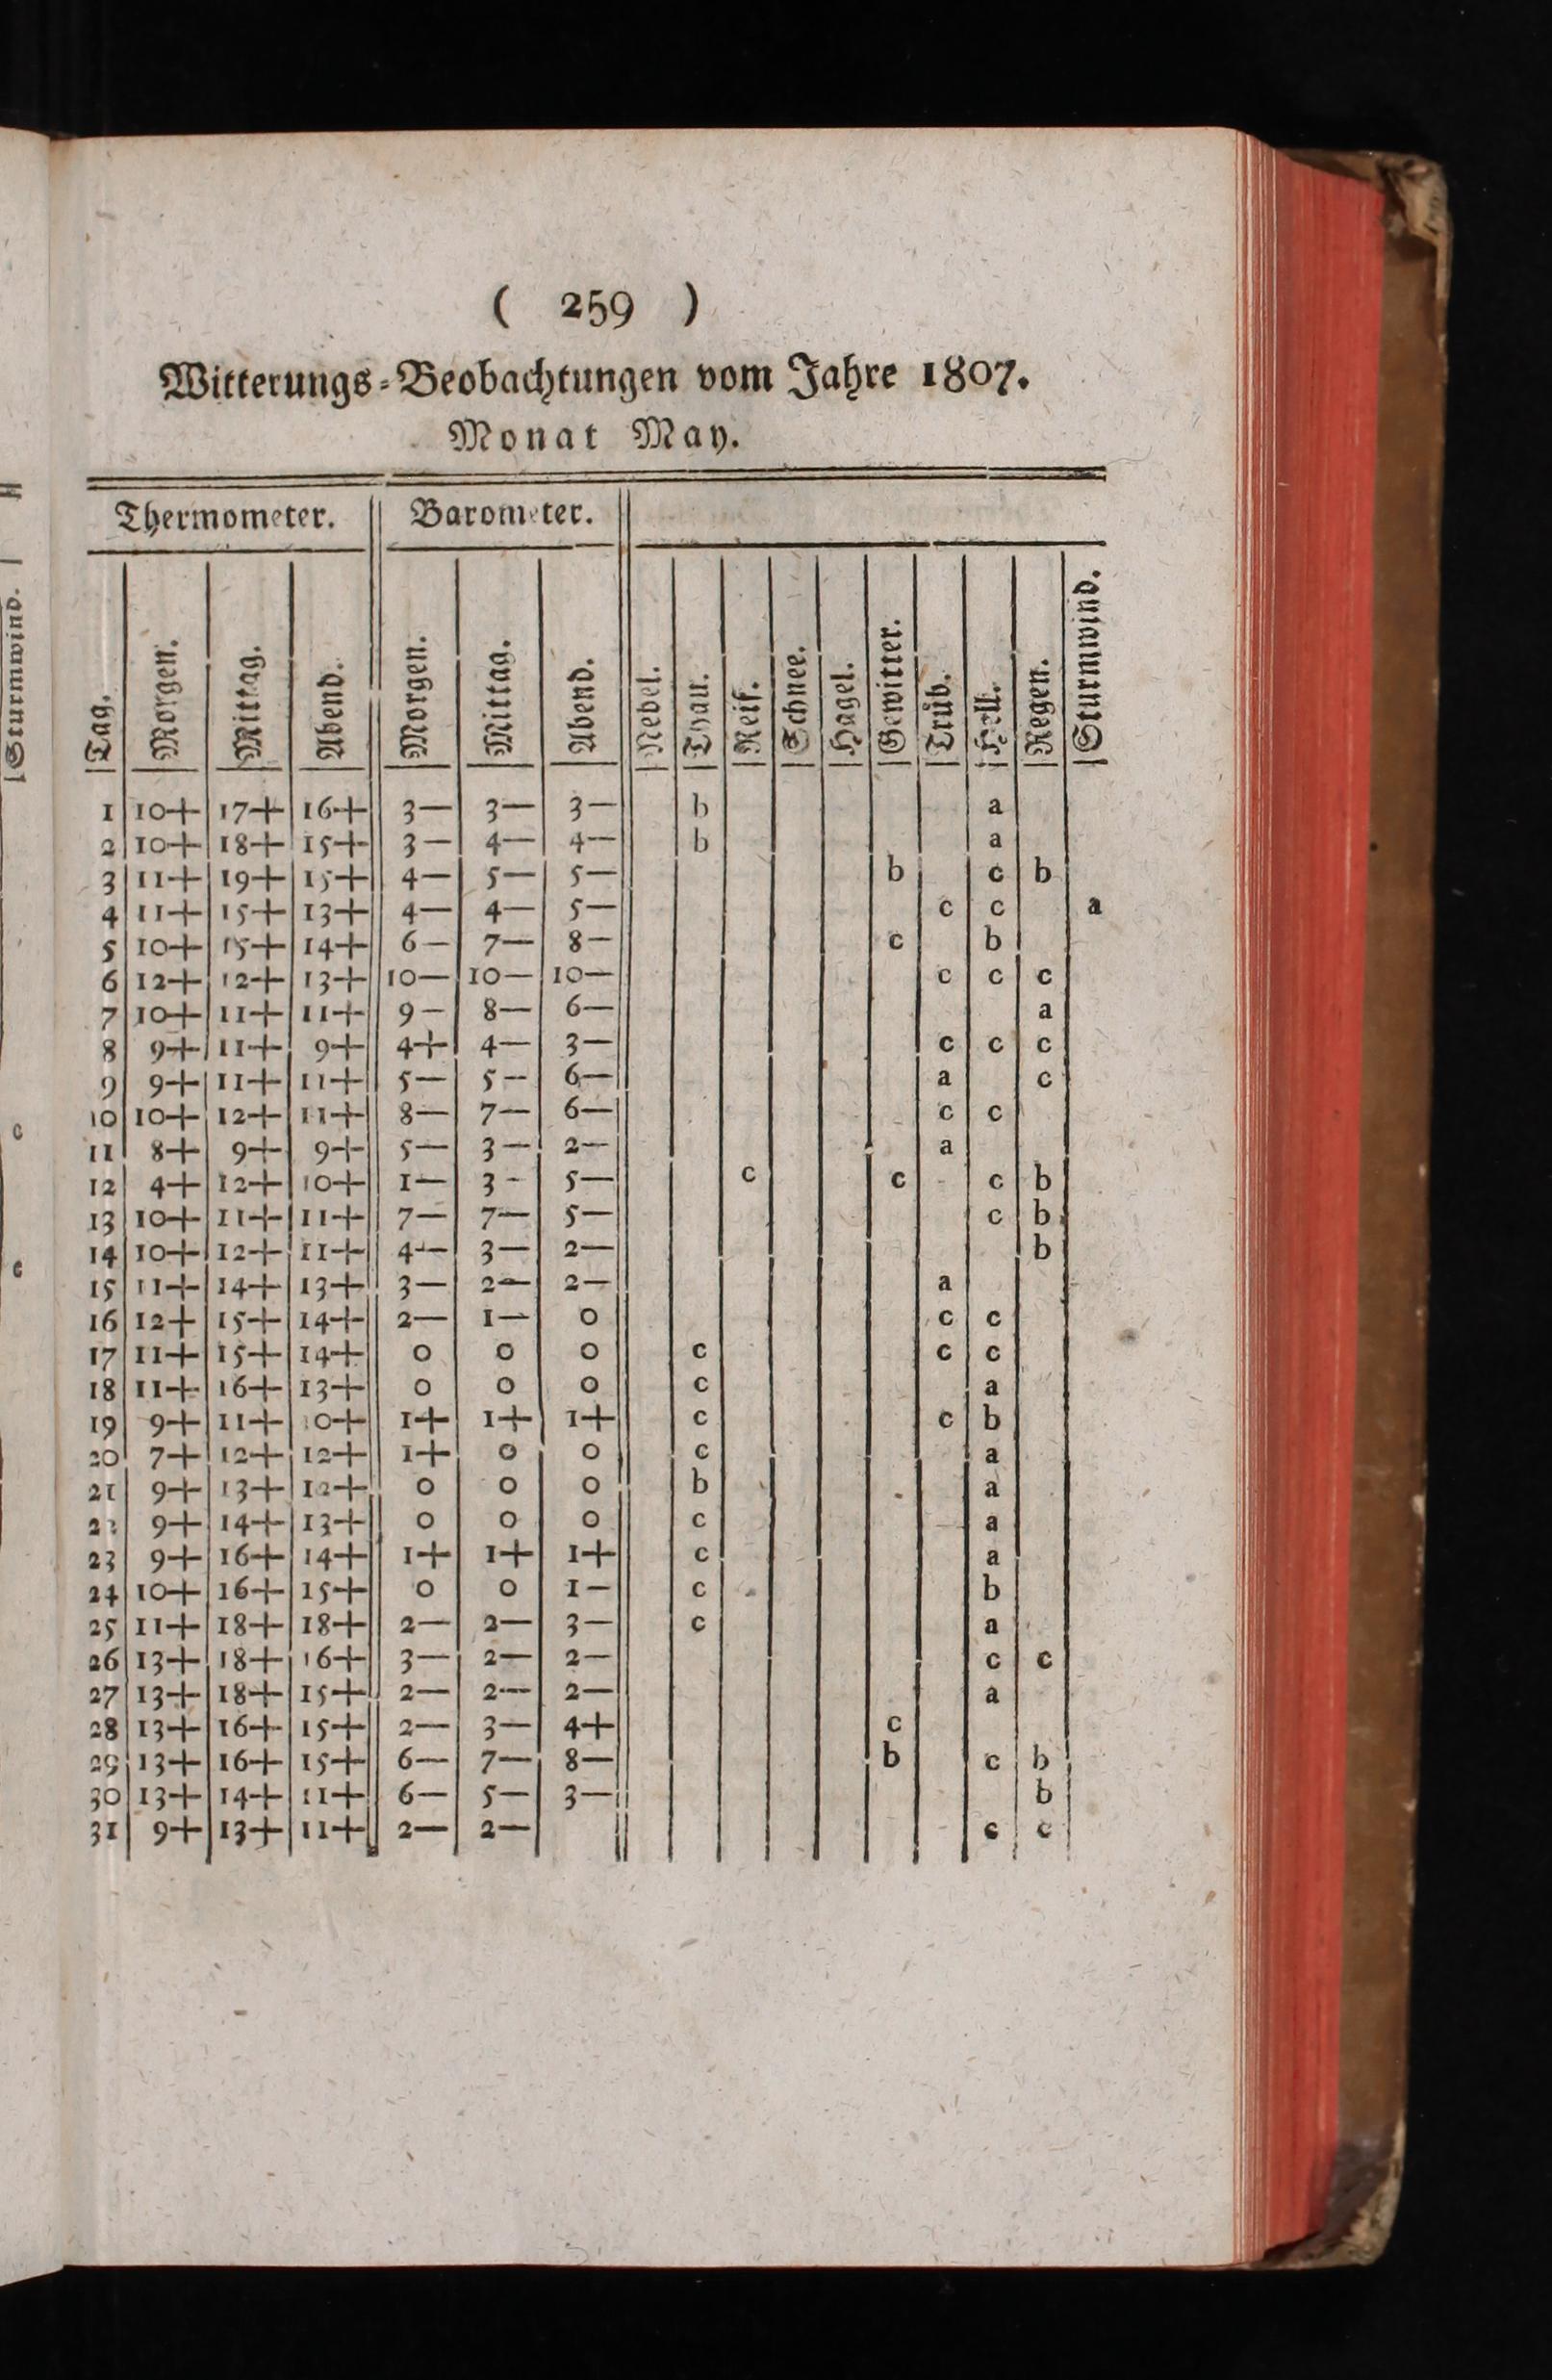 ( 259 )
Witterungs-Beobachtungen vom Jahre 1807.
Monat May.
Thermometer. Barometer.
Tag. Morgen. Mittag. Abend. Morgen. Mittag. Abend. Nebel. Thau. Reif. Schnee. Hagel. Gewitter. Trüb. Hell. Regen. Sturmwind.
1 10+ 17+ 16+ 3— 3— 3— b a
2 10+ 18+ 15+ 3— 4— 4— b a
3 11+ 19+ 15+ 4— 5— 5— b c b
4 11+ 15+ 13+ 4— 4— 5— c c a
5 10+ 15+ 14+ 6— 7— 8— c b
6 12+ 12+ 13+ 10— 10— 10— c c c
7 10+ 11+ 11+ 9— 8— 6— a
8 9+ 11+ 9+ 4+ 4— 3— c c c
9 9+ 11+ 11+ 5— 5— 6— a c
10 10+ 12+ 11+ 8— 7— 6— c c
11 8+ 9+ 9+ 5— 3— 2— a
12 4+ 12+ 10+ 1— 3— 5— c c c b
13 10+ 11+ 11+ 7— 7— 5— c b
14 10+ 12+ 11+ 4— 3— 2— b
15 11+ 14+ 13+ 3— 2— 2— a
16 12+ 15+ 14+ 2— 1— 0 c c
17 11+ 15+ 14+ 0 0 0 c c c
18 11+ 16+ 13+ 0 0 0 c a
19 9+ 11+ 10+ 1+ 1+ 1+ c c b
20 7+ 12+ 12+ 1+ 0 0 c a
21 9+ 13+ 12+ 0 0 0 b a
22 9+ 14+ 13+ 0 0 0 c a
23 9+ 16+ 14+ 1+ 1+ 1+ c a
24 10+ 16+ 15+ 0 0 1— c b
25 11+ 18+ 18+ 2— 2— 3— c a
26 13+ 18+ 16+ 3— 2— 2— c c
27 13+ 18+ 15+ 2— 2— 2— a
28 13+ 16+ 15+ 2— 3— 4+ c
29 13+ 16+ 15+ 6— 7— 8— b c b
30 13+ 14+ 11+ 6— 5— 3— b
31 9+ 13+ 11+ 2— 2— c c
Sturmwind.
c
c